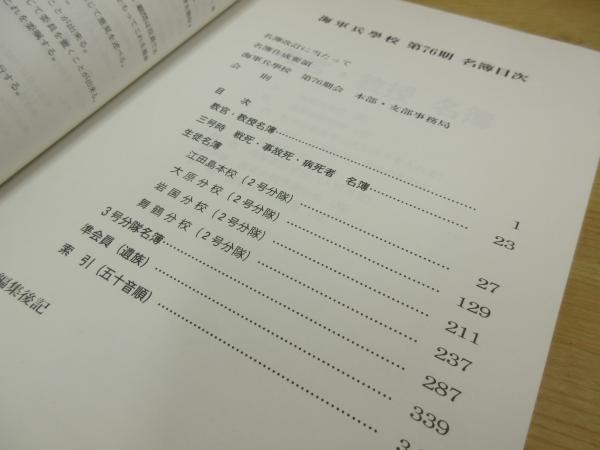 海軍兵學校 第76期 名簿目次
名簿改訂に当たって
名簿作成要領
海軍兵學校 第76期会 本部・支部事務局
会則
目次
教官・教授名簿 1
三号時 戦死・事故死・病死者 名簿 23
生徒名簿
江田島本校(2号分隊) 27
大原分校(2号分隊) 129
岩国分校(2号分隊) 211
舞鶴分校(2号分隊) 237
3号分隊名簿 287
準会員(遺族) 339
索引(五十音順)
編集後記